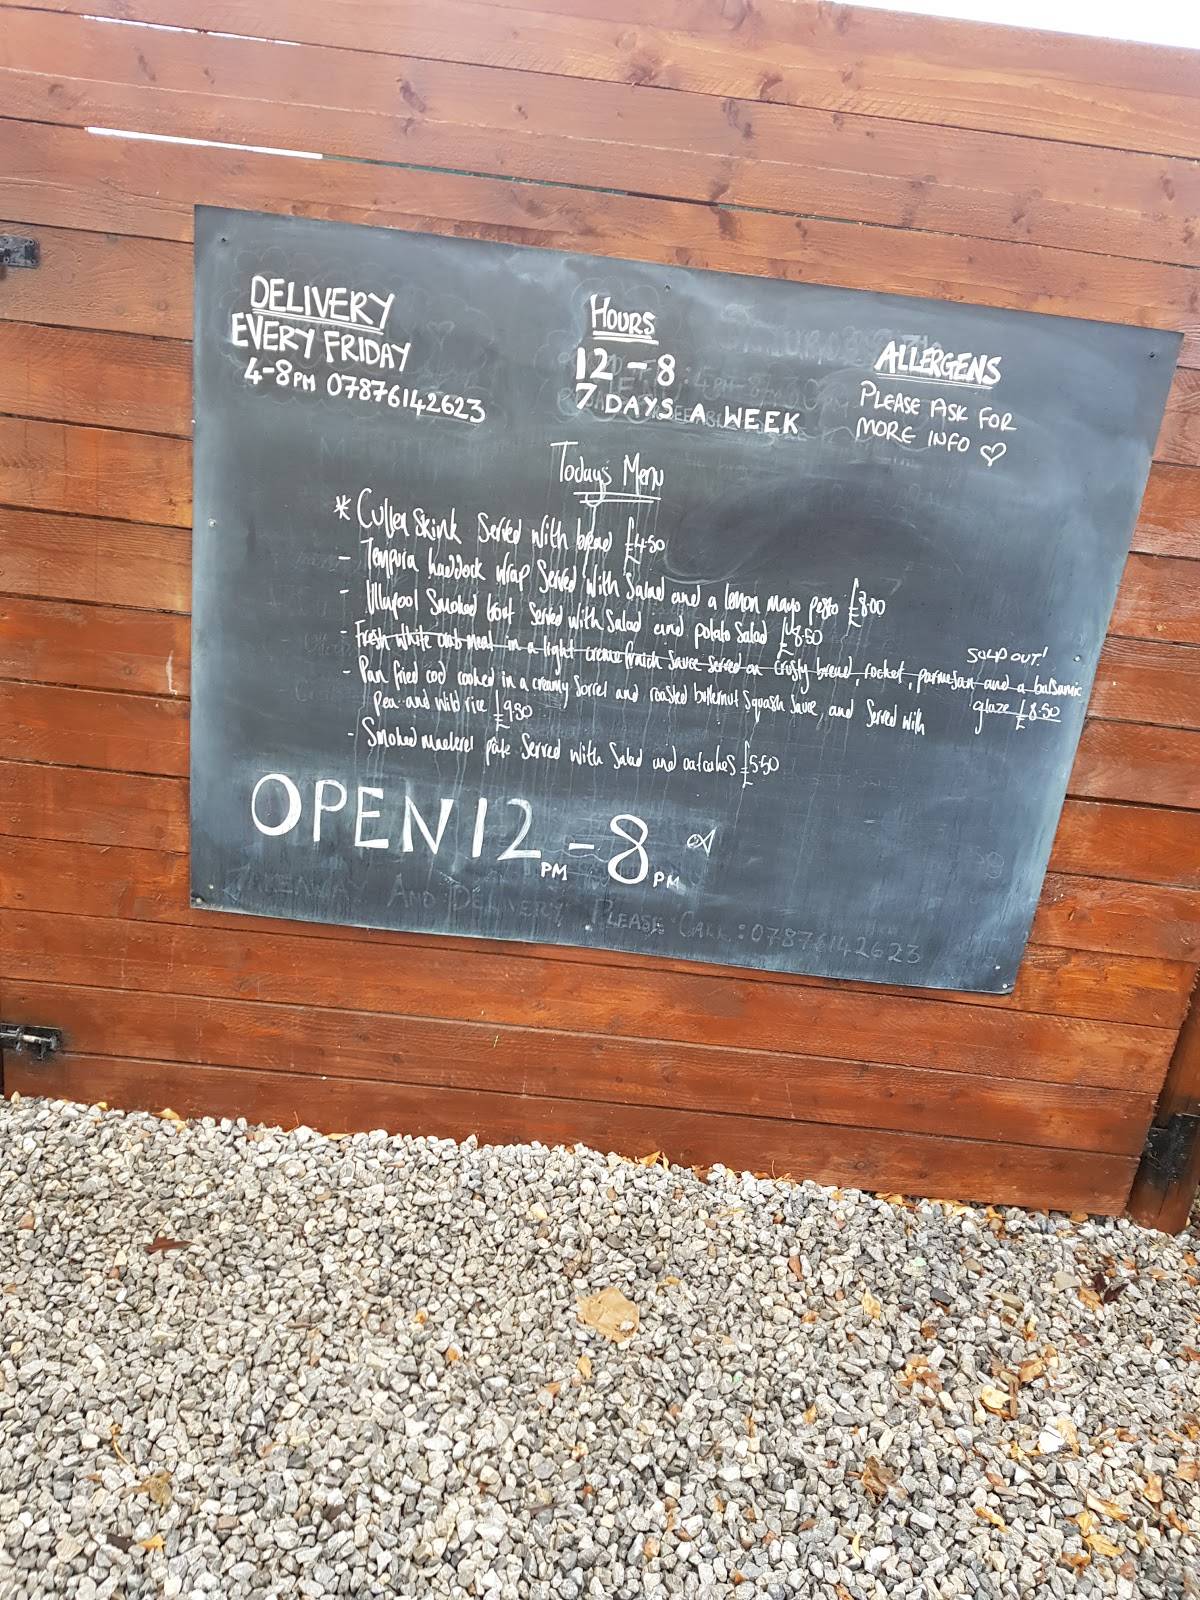 DELIVERY
EVERY FRIDAY
4-8PM 07876142623
HOURS
12-8
7 DAYS A WEEK
ALLERGENS
PLEASE ASK FOR
MORE INFO ♡
Todays Menu
* Cullen Skink Served with bread £4.50
- Tempura haddock wrap Served with Salad and a lemon mayo pesto £8.00
- Ullapool Smoked Served with Salad and potato Salad £8.50
SOLD OUT!
- Fresh white crab meat in a light creme fraich Sauce Served on Crusty bread, rocket, parmesan and a balsamic
glaze £8.50
- Pan fried cod cooked in a creamy Sorrel and roasted butternut Squash Sauce, and Served with
Pea and wild rice £9.50
- Smoked mackerel pate Served with Salad and oatcakes £5.50
OPEN 12PM - 8PM
TAKEAWAY AND DELIVERY PLEASE CALL: 07876142623